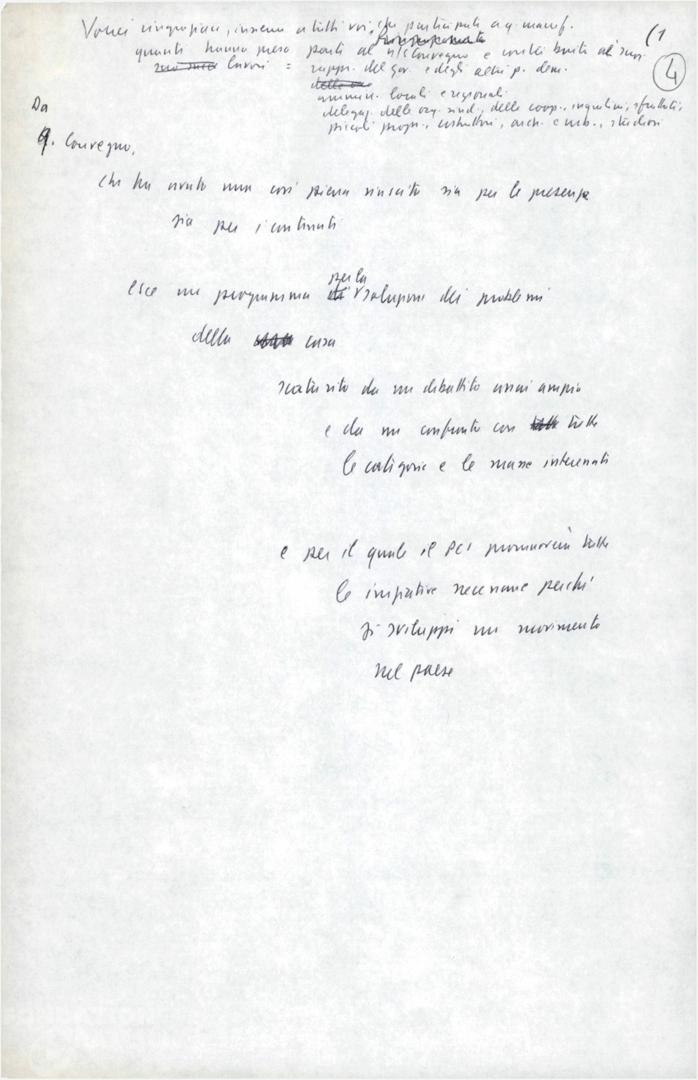 Vorrei ringraziare, insieme a tutti voi, che partecipate a q. manif. (1
quanti hanno preso parte al ns/Convegno e contribuito ai suoi 4
lavori = rappr. del gov. e degli altri p. dem.
amminis. locali e regionali
delegaz. delle org. sind., delle coop., inquilini, sfrattati,
piccoli propr., costruttori, arch. e urb., studiosi
Da
q. Convegno,
che ha avuto una così piena riuscita sia per le presenze
sia per i contenuti
per la
esce un programma soluzione dei problemi
della casa
scaturito da un dibattito assai ampio
e da un confronto con tutte
le categorie e le masse interessati
e per il quale il PCI promuoverà tutte
le iniziative necessarie perché
si sviluppi un movimento
nel paese